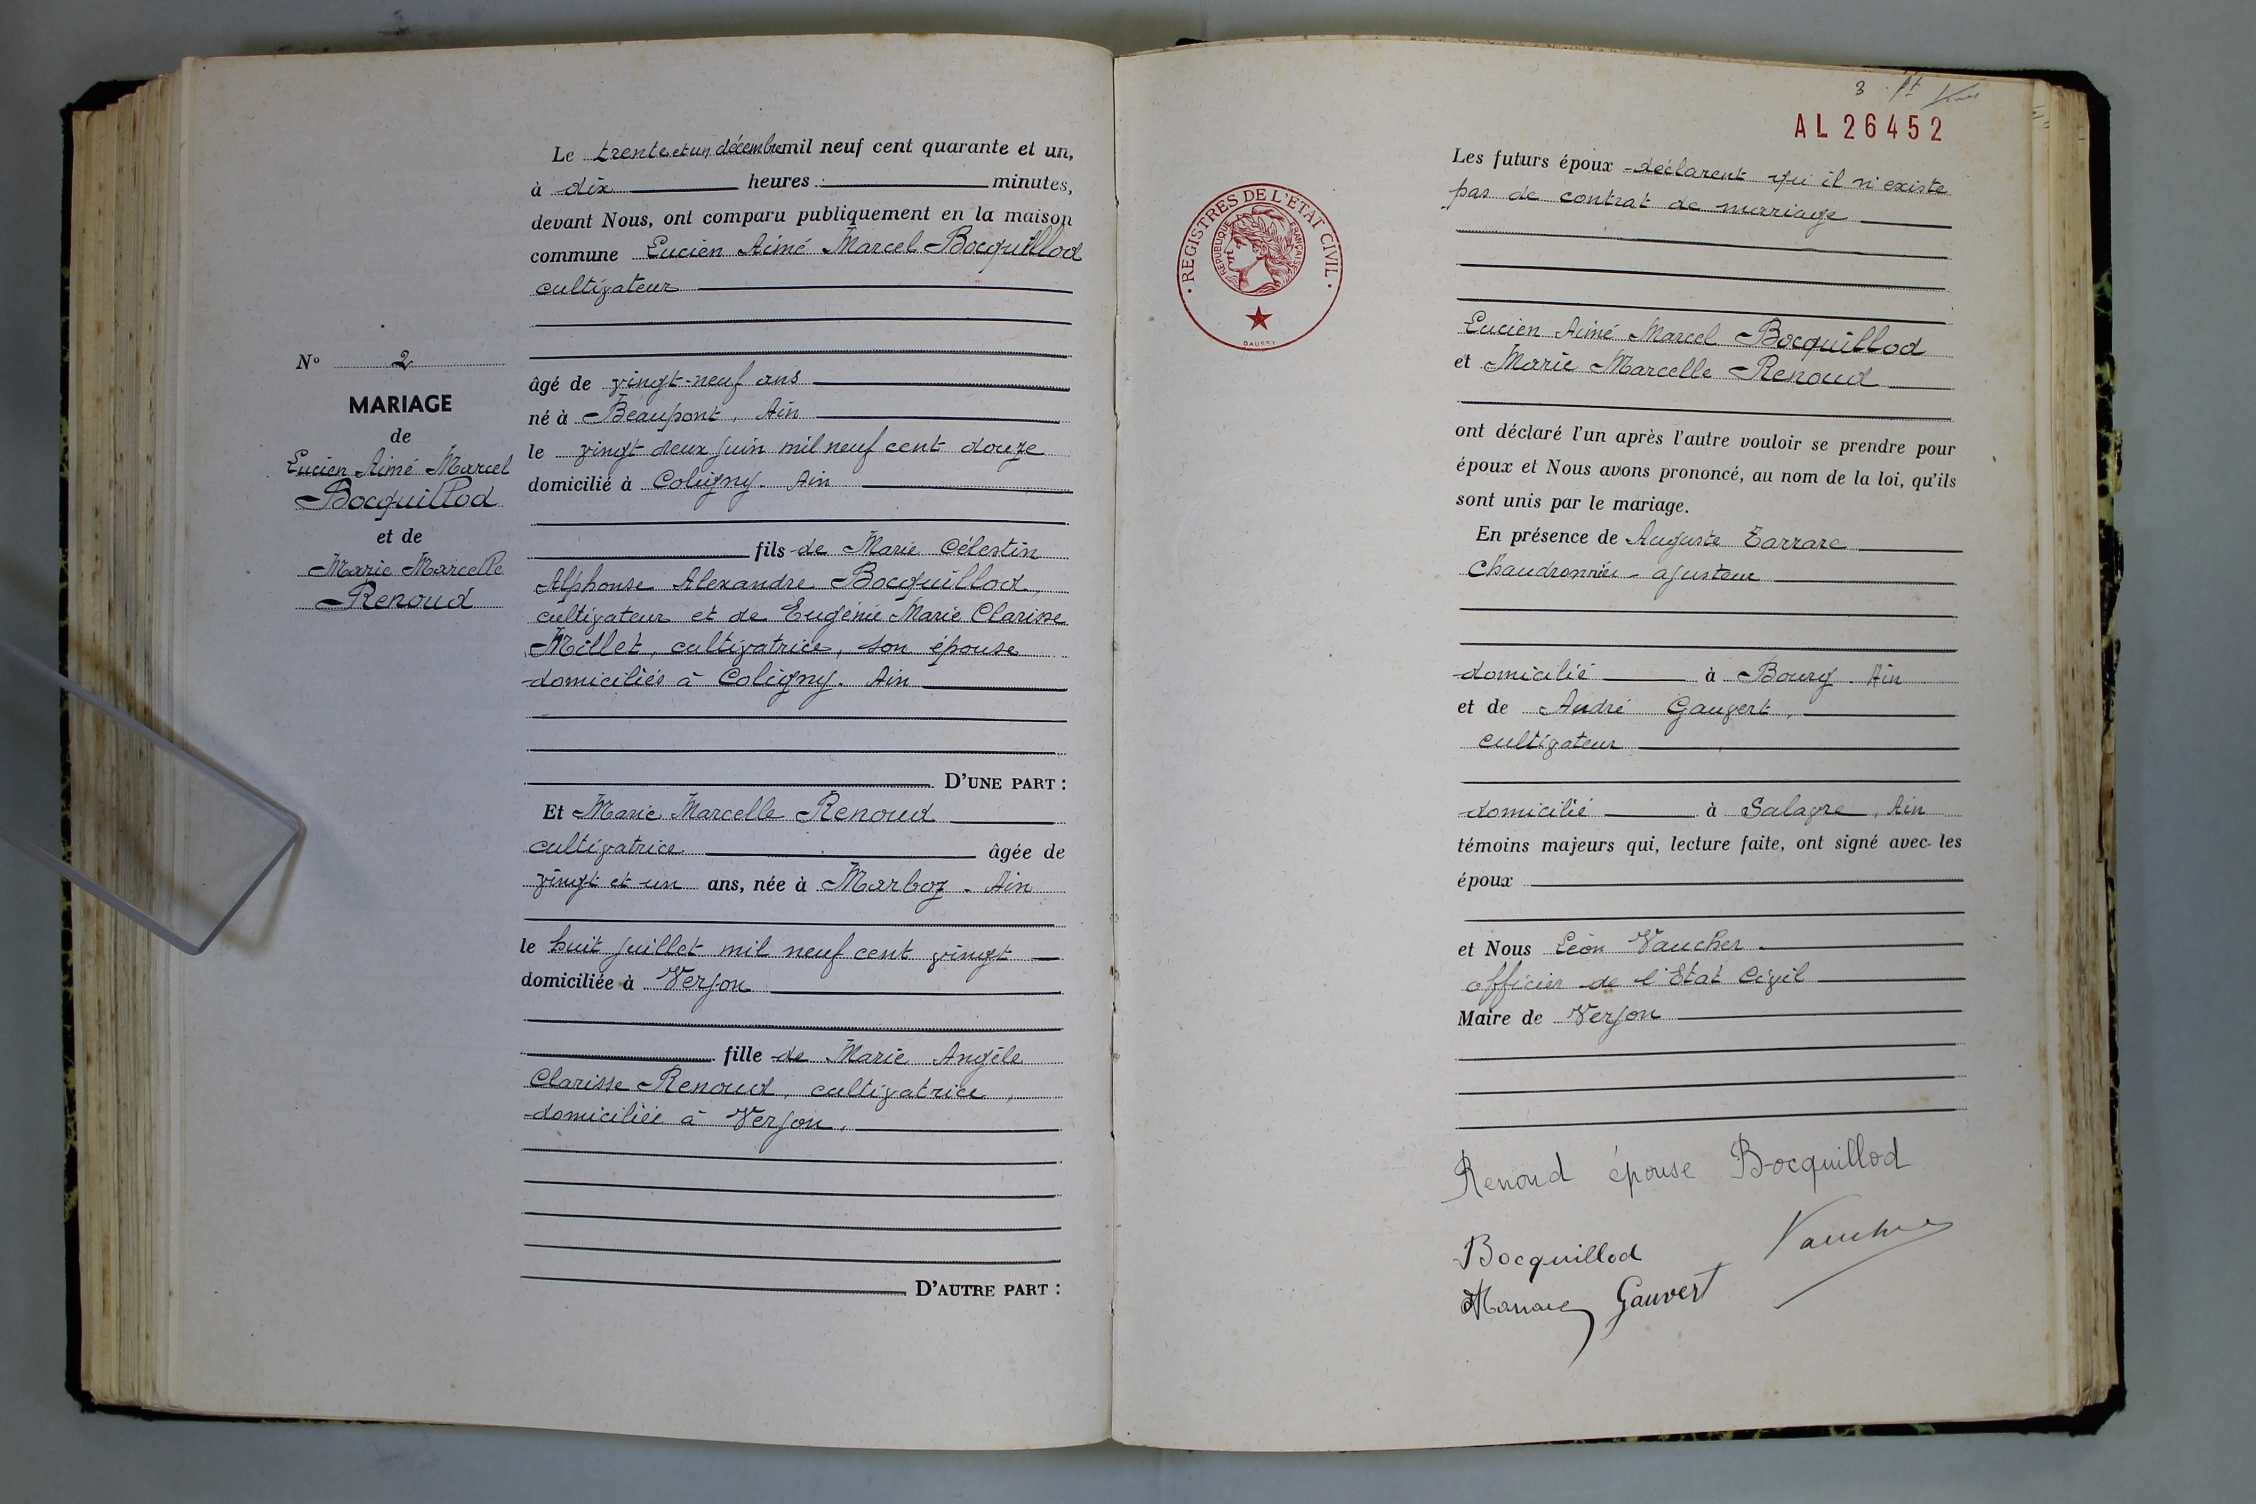 Le trente et un décembre mil neuf cent quarante et un,
à dix heures minutes,
devant Nous, ont comparu publiquement en la maison
commune Lucien Aimé Marcel Bocquillod
cultivateur
âgé de vingt-neuf ans
né à Beaupont, Ain
le vingt deux juin mil neuf cent douze
domicilié à Coligny. Ain
fils de Marie Célestin
Alphonse Alexandre Bocquillod,
cultivateur et de Eugénie Marie Clarisse
Millet, cultivatrice, son épouse
domiciliés à Coligny. Ain
D'UNE PART :
Et Marie Marcelle Renoud
cultivatrice âgée de
vingt et un ans, née à Marboz - Ain
le huit juillet mil neuf cent vingt
domiciliée à Verjon
fille de Marie Angèle
Clarisse Renoud, cultivatrice,
domiciliée à Verjon.
D'AUTRE PART :
N° 2
MARIAGE
de
Lucien Aimé Marcel
Bocquillod
et de
Marie Marcelle
Renoud
3
AL 26452
REGISTRES DE L'ETAT CIVIL
REPUBLIQUE FRANÇAISE
DAUSSY
Les futurs époux déclarent qu'il n'existe
pas de contrat de mariage
Lucien Aimé Marcel Bocquillod
et Marie Marcelle Renoud
ont déclaré l'un après l'autre vouloir se prendre pour
époux et Nous avons prononcé, au nom de la loi, qu'ils
sont unis par le mariage.
En présence de Auguste
Chaudronnier - ajusteur
domicilié à Bourg. Ain
et de André Gauvert,
cultivateur
domicilié à Salavre, Ain
témoins majeurs qui, lecture faite, ont signé avec les
époux
et Nous Léon Vaucher
officier de l'Etat Civil
Maire de Verjon
Renoud épouse Bocquillod
Bocquillod
Vaucher
Gauvert